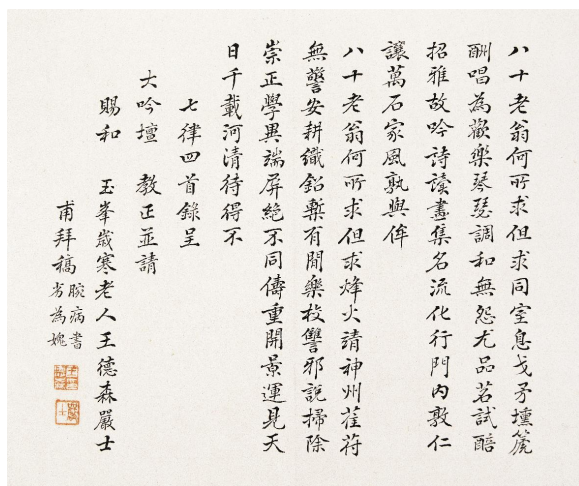 八十老翁何所求但求同室息戈矛壎篪
酬唱為歡樂琴瑟調和無怨尤品茗試醅
招雅故吟詩讀畫集名流化行門內敦仁
讓萬石家風孰與侔
八十老翁何所求但求烽火靖神州萑苻
無警安耕織鉛槧有閒樂校讐邪說掃除
崇正學異端屏絕不同儔重開景運見天
日千載河清待得不
七律四首錄呈
大吟壇 教正並請
賜和 玉峯歲寒老人王德森嚴士
甫拜稿 腕病書
劣為媿